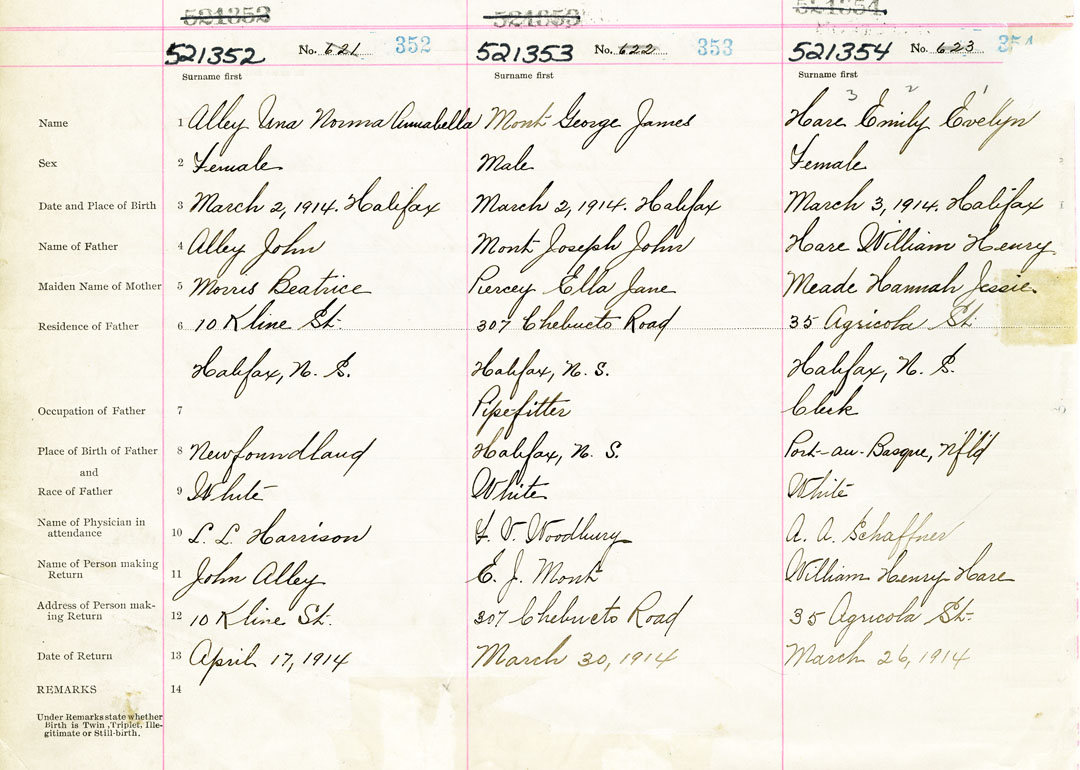 521352 521353 521354
521352 No. 621 352 521353 No. 622 353 521354 No. 623 354
Surname first Surname first Surname first
3 2 1
Name 1 Alley Una Norma Annabella Mont George James Hare Emily Evelyn
Sex 2 Female Male Female
Date and Place of Birth 3 March 2, 1914. Halifax March 2, 1914. Halifax March 3, 1914. Halifax
Name of Father 4 Alley John Mont Joseph John Hare William Henry
Maiden Name of Mother 5 Morris Beatrice Piercey Ella Jane Meade Hannah Jessie
Residence of Father 6 10 Kline St. 307 Chebucto Road 35 Agricola St.
Halifax, N. S. Halifax, N. S. Halifax, N. S.
Occupation of Father 7 Pipefitter Clerk
Place of Birth of Father 8 Newfoundland Halifax, N. S. Port-au-Basque, Nfld
and
Race of Father 9 White White White
Name of Physician in
attendance 10 L. L. Harrison F. V. Woodbury A. A. Schaffner
Name of Person making
Return 11 John Alley E. J. Mont William Henry Hare
Address of Person mak-
ing Return 12 10 Kline St. 307 Chebucto Road 35 Agricola St.
Date of Return 13 April 17, 1914 March 30, 1914 March 26, 1914
REMARKS 14
Under Remarks state whether
Birth is Twin, Triplet, Ille-
gitimate or Still-birth.